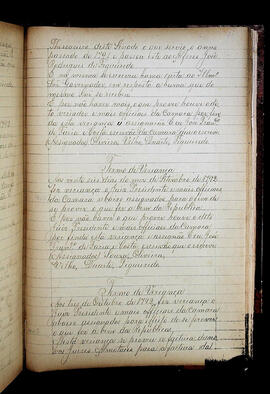 Thesoureiro deste Senado o que servio, o anno
passado de 1791 e passou este ao Alferes José
Rodrigues de Siqueira.
E na mesma escreveu-se huma carta ao Illmo
Snr Governador, em resposta a huma que do
mesmo Snr se recebeu.
E por não haver mais, o que prover houve
vereador e mais officiaes da Camara por
esta vereança e assignarão
de Faria e Costa escrivão da Camara que o escrevi
Assignados Oliveira, Velho, Duarte, Siqueira
Termo de Vereança
Aos vinte seis dias do mez de Setembro de 1792
fez vereança o Juiz Presidente e mais officiaes
da Camara abaixo assignados para o bem de
se prover o que for a bem da Republica
E por não haver o que prover houve o dito
Juiz Presidente e mais officiaes da Camara
por finda esta vereança e assignarão Eu José
de Faria e Costa, escrivão que o escrevi
Assignados Souza, Oliveira,
Velho, Duarte, Siqueira
Termo de Vereança
Aos seis de Outubro de 1792, fez vereança o
Juiz Presidente e mais officiaes da Camara
abaixo assignados para o effeito de se prover
o que for a bem da Republica,
Nesta vereança se proveo a factura
dos Juizes Almotacés para a factura das